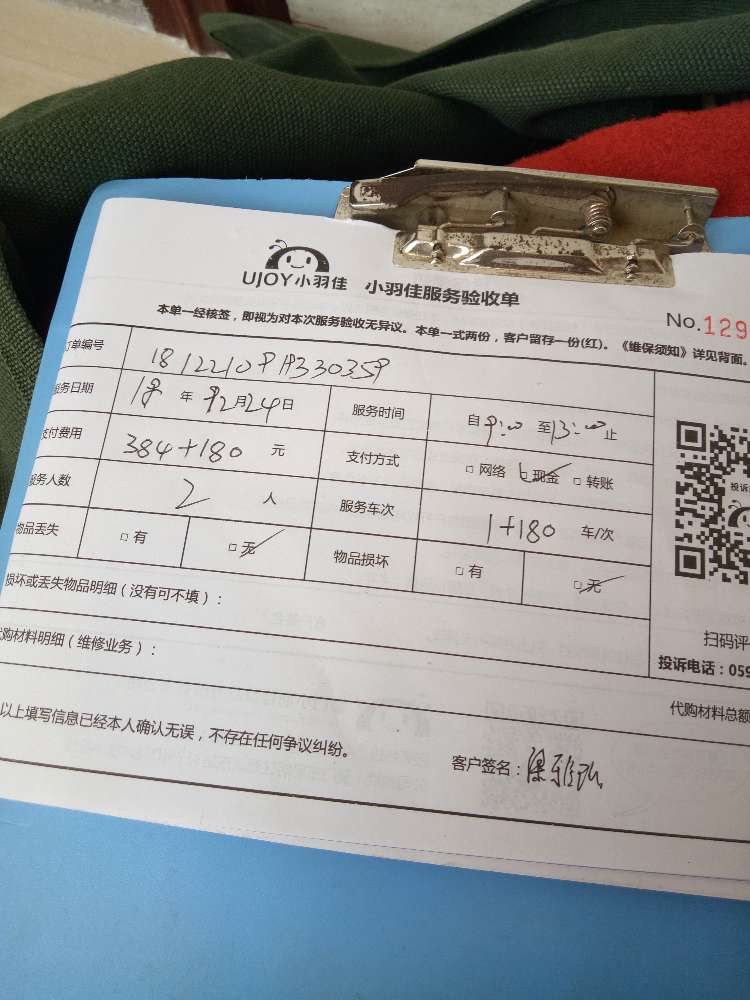 UJOY小羽佳 小羽佳服务验收单
本单一经核签，即视为对本次服务验收无异议。本单一式两份，客户留存一份(红)。《维保须知》详见背面。
No.129
订单编号
服务日期 18 年 12月24日 服务时间 自 9:00 至13:00止
支付费用 384+180 元 支付方式 □网络 □现金 □转账
服务人数 2 人 服务车次 1+180 车/次
物品丢失 □有 □无 物品损坏 □有 □无
投诉
损坏或丢失物品明细（没有可不填）：
扫码评
代购材料明细（维修业务）：
投诉电话：059
代购材料总额
以上填写信息已经本人确认无误，不存在任何争议纠纷。
客户签名：梁雅